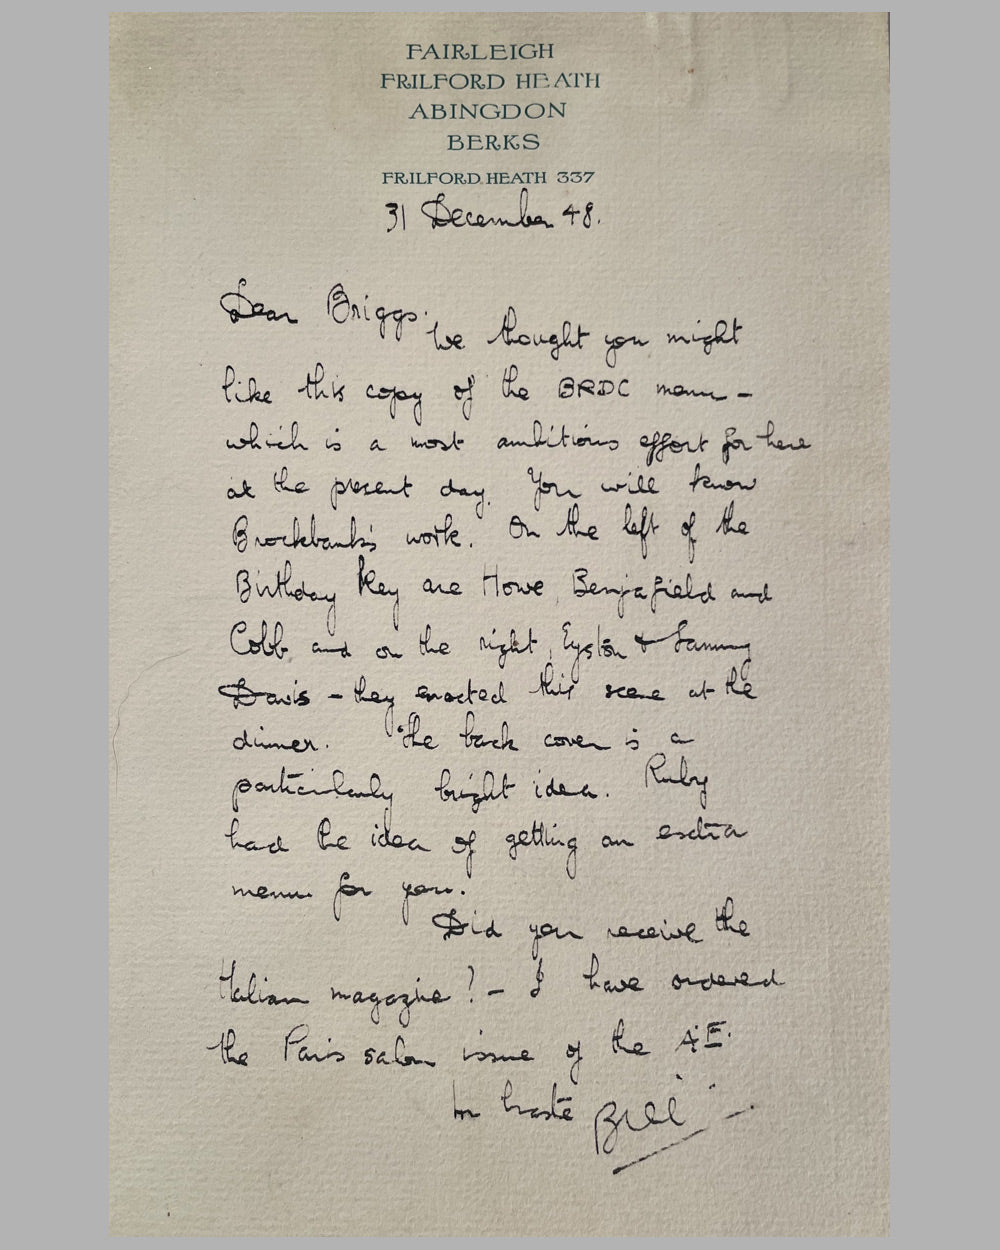 FAIRLEIGH
FRILFORD HEATH
ABINGDON
BERKS
FRILFORD HEATH 337
31 December 48.
Dear Briggs.
We thought you might
like this copy of the BRDC menu -
which is a most ambitious effort for here
at the present day. You will know
Brockbank's work. On the left of the
Birthday Key are Howe, Benjafield and
Cobb and on the right, Eyston & Sammy
Davis - they enacted this scene at the
dinner. The back cover is a
particularly bright idea. Ruby
had the idea of getting an extra
menu for you.
Did you receive the
Italian magazine? - I have ordered
the Paris salon issue of the AE.
In haste Bill